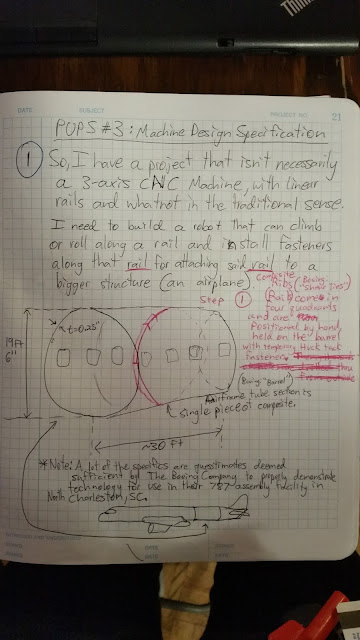 DATE SUBJECT PROJECT NO. 21
PUPS #3: Machine Design Specification
1 So, I have a project that isn't necessarily
a 3-axis CNC Machine, with linear
rails and whatnot in the traditional sense.
I need to build a robot that can climb
or roll along a rail and install fasteners
along that rail for attaching said rail to a
bigger structure (an airplane).
Step 1
Composite
Ribs (Boeing
"Shear Ties")
come in
four quadrants
and are
Positioned by hand,
held on the barrel
with temporary Huck tack
fasteners.
t=0.25"
19 FT
6"
(Boeing "Barrel")
Airframe tube section is
single piece of composite.
~30 ft
*Note: A lot of the specifics are guesstimates deemed
sufficient by The Boeing Company to properly demonstrate
technology for use in their 787-assembly facility in
North Charleston, SC.
DATE
DATE